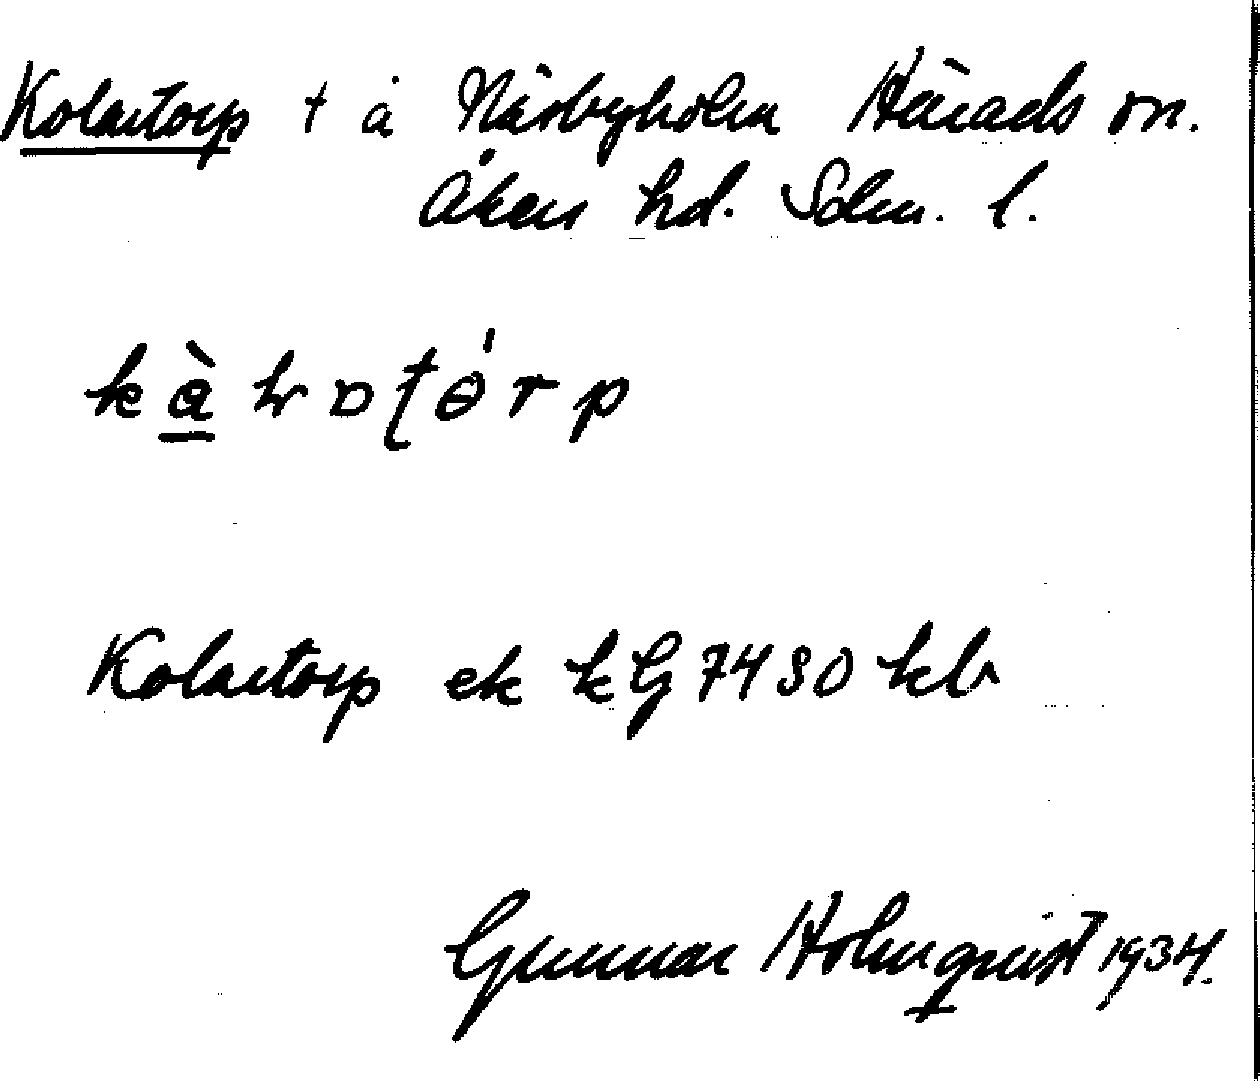 Kolartorp t å Näsbyholm Härads sn.
Åkers hd. Sdm. l.
Kolartorp ek kG 7480 kbr
Gunnar Holmqvist 1934.